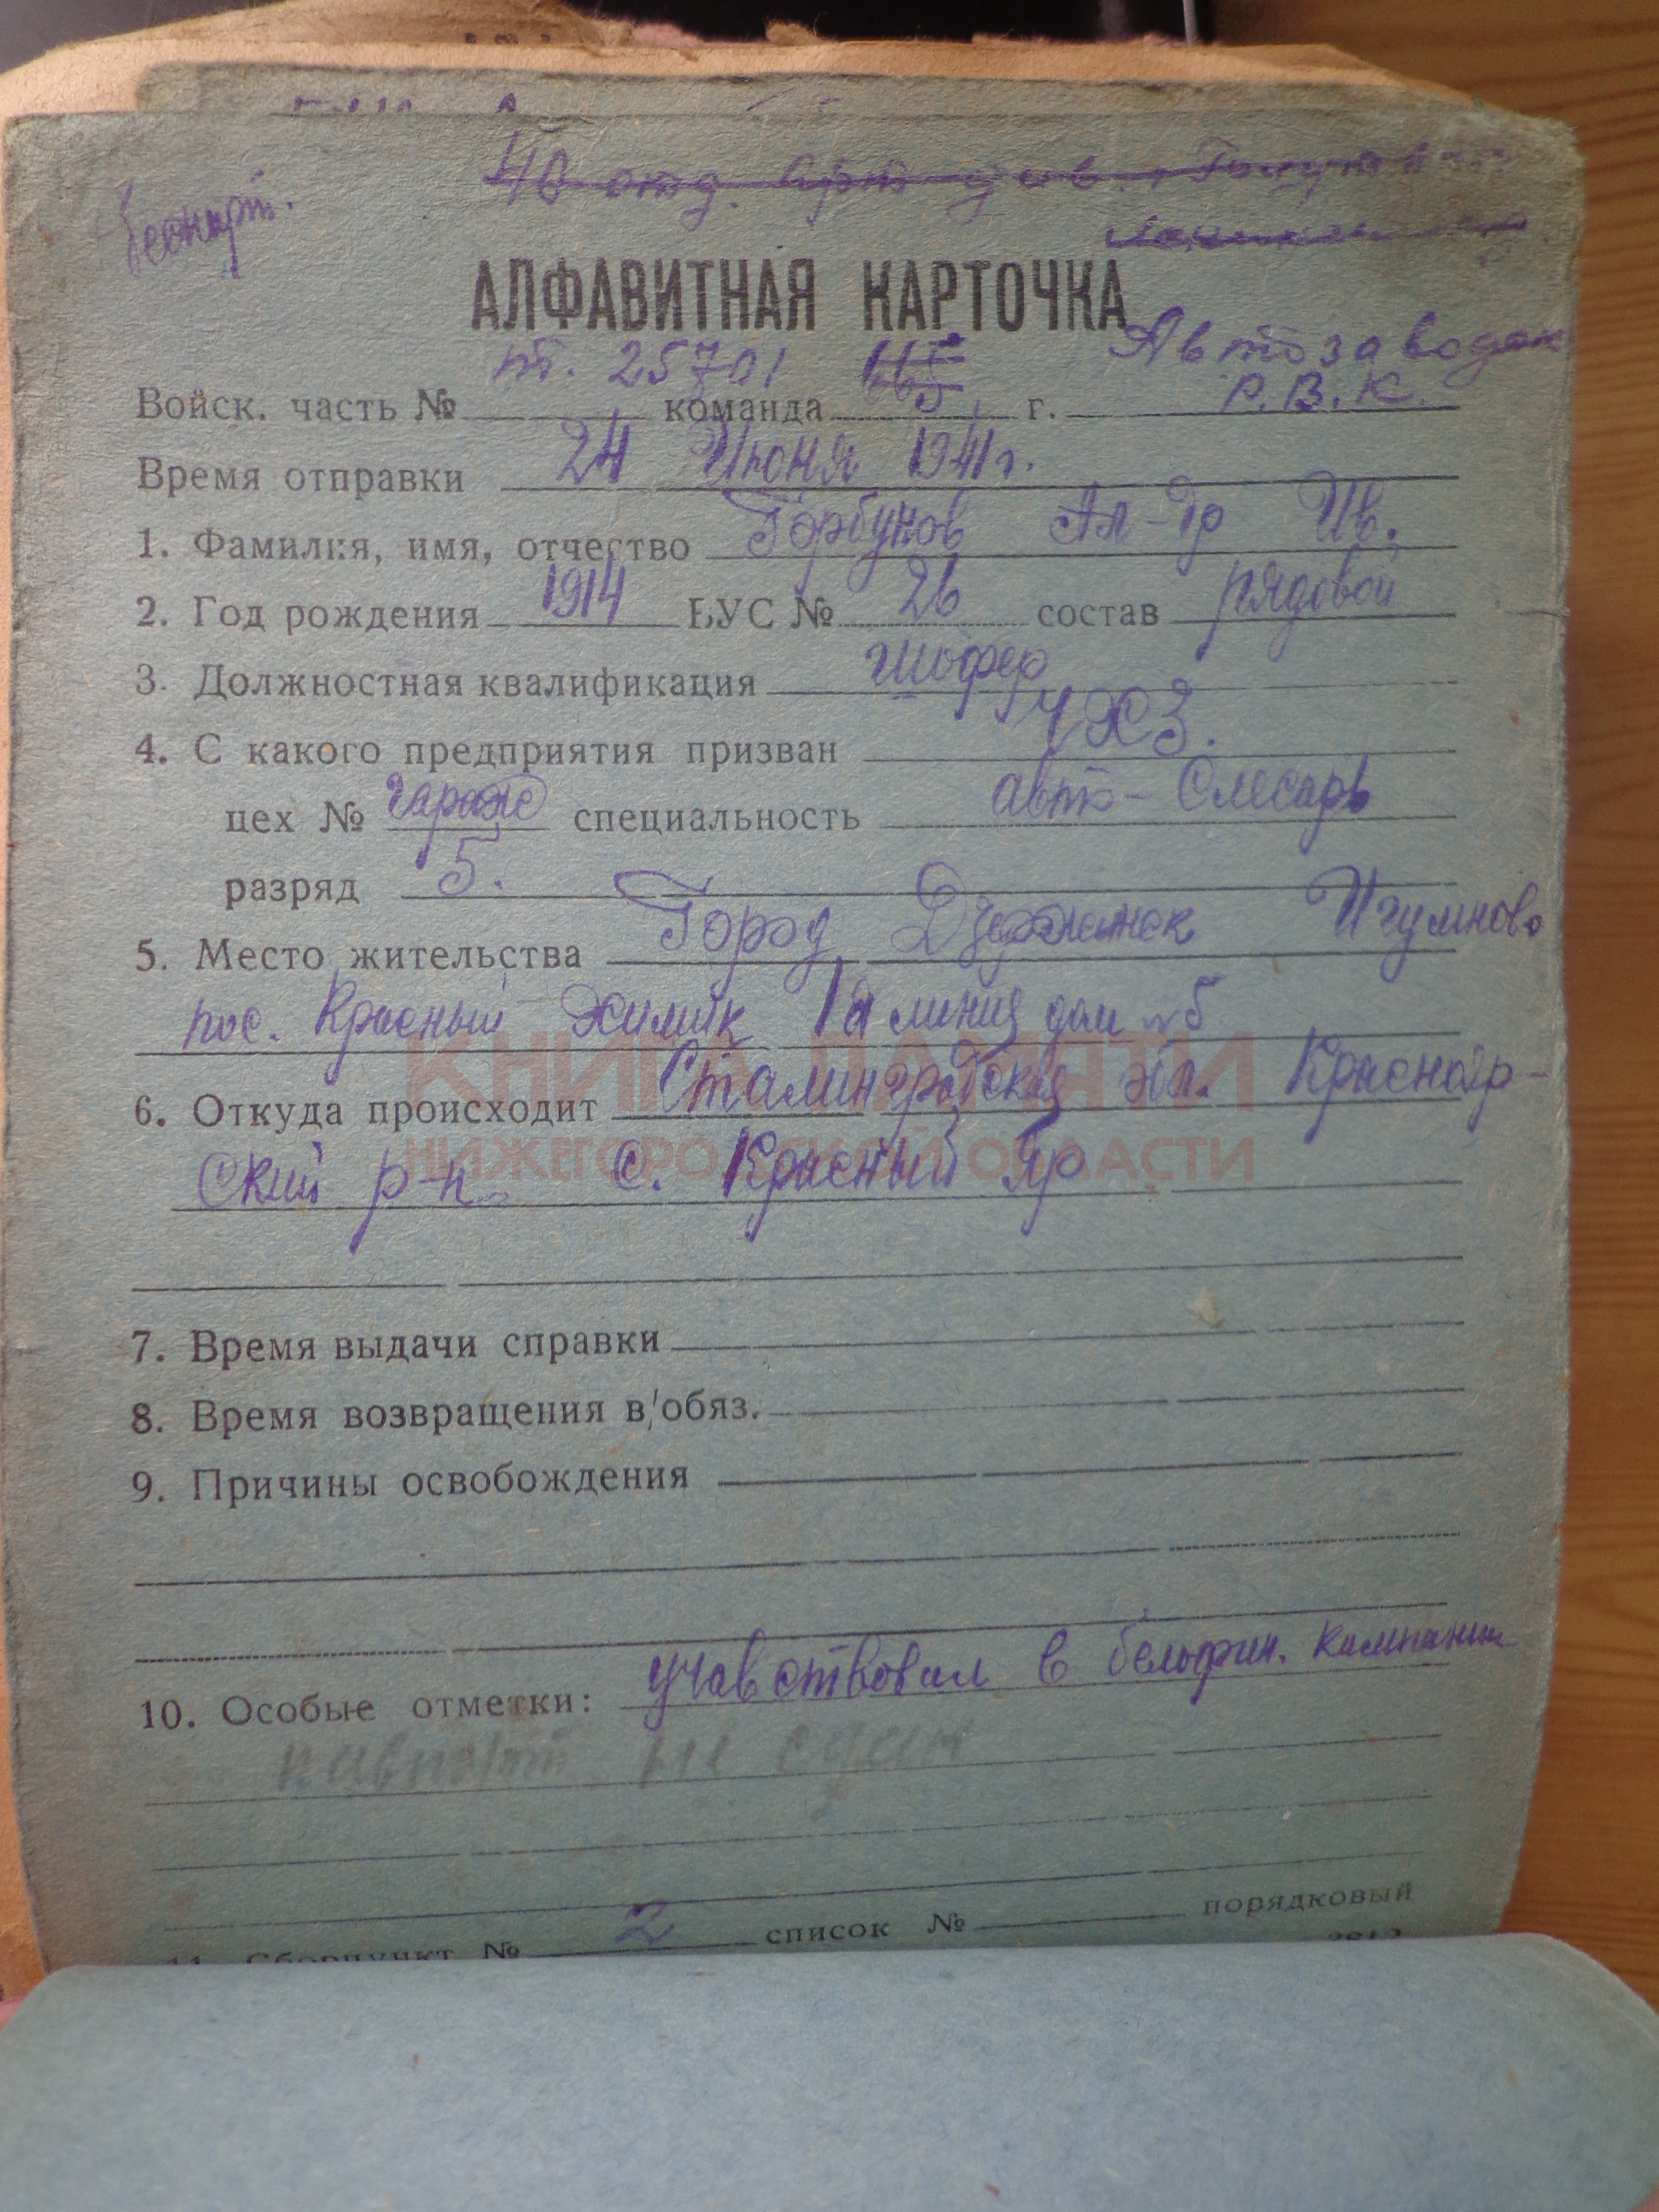 беспарт.
40 отд. арт див.
АЛФАВИТНАЯ КАРТОЧКА
пт. 25701 Автозаводск
Войск. часть № команда г. Р.В.К.
Время отправки 24 Июня 1941 г.
1. Фамилия, имя, отчество Горбунов Ал-др Ив.
2. Год рождения 1914 ВУС № 26 состав рядовой
3. Должностная квалификация шофер
4. С какого предприятия призван ЧХЗ.
цех № гараж специальность авто-Слесарь
разряд 5.
5. Место жительства Город Дзержинск Игумново
пос. Красный Химик 1а линия дом №5
КНИГА ПАМЯТИ
6. Откуда происходит Сталинградская обл. Краснояр-
НИЖЕГОРОДСКОЙ ОБЛАСТИ
ский р-н. с. Красный Яр
7. Время выдачи справки
8. Время возвращения в/обяз.
9. Причины освобождения
10. Особые отметки: учавствовал в белофин. кампании
паспорт не сдан
11. Сборпункт № 2 список № порядковый